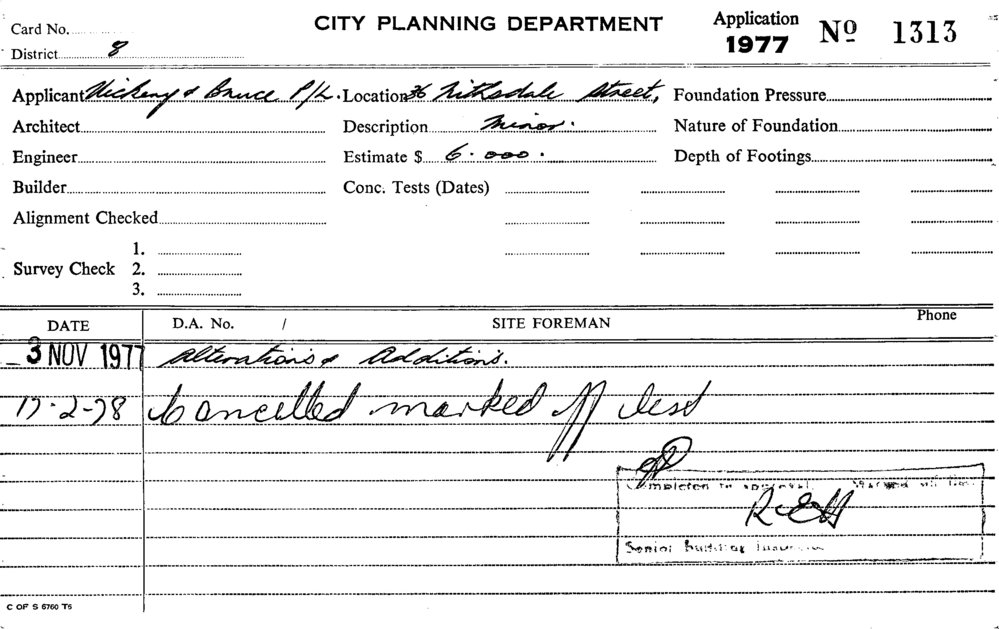 Card No.
CITY PLANNING DEPARTMENT
Application 1977 No 1313
District 8
Applicant Hickey & Bruce P/L. Location 36 Nithsdale Street, Foundation Pressure
Architect Description Minor. Nature of Foundation
Engineer Estimate $ 6.000. Depth of Footings
Builder Conc. Tests (Dates)
Alignment Checked
1.
Survey Check 2.
3.
DATE D.A. No. / SITE FOREMAN Phone
3 NOV 1977 Alterations & Additions.
17-2-78 Cancelled marked off
Completed to approval. Marked off
Senior Building Inspector
C OF S 6760 T5